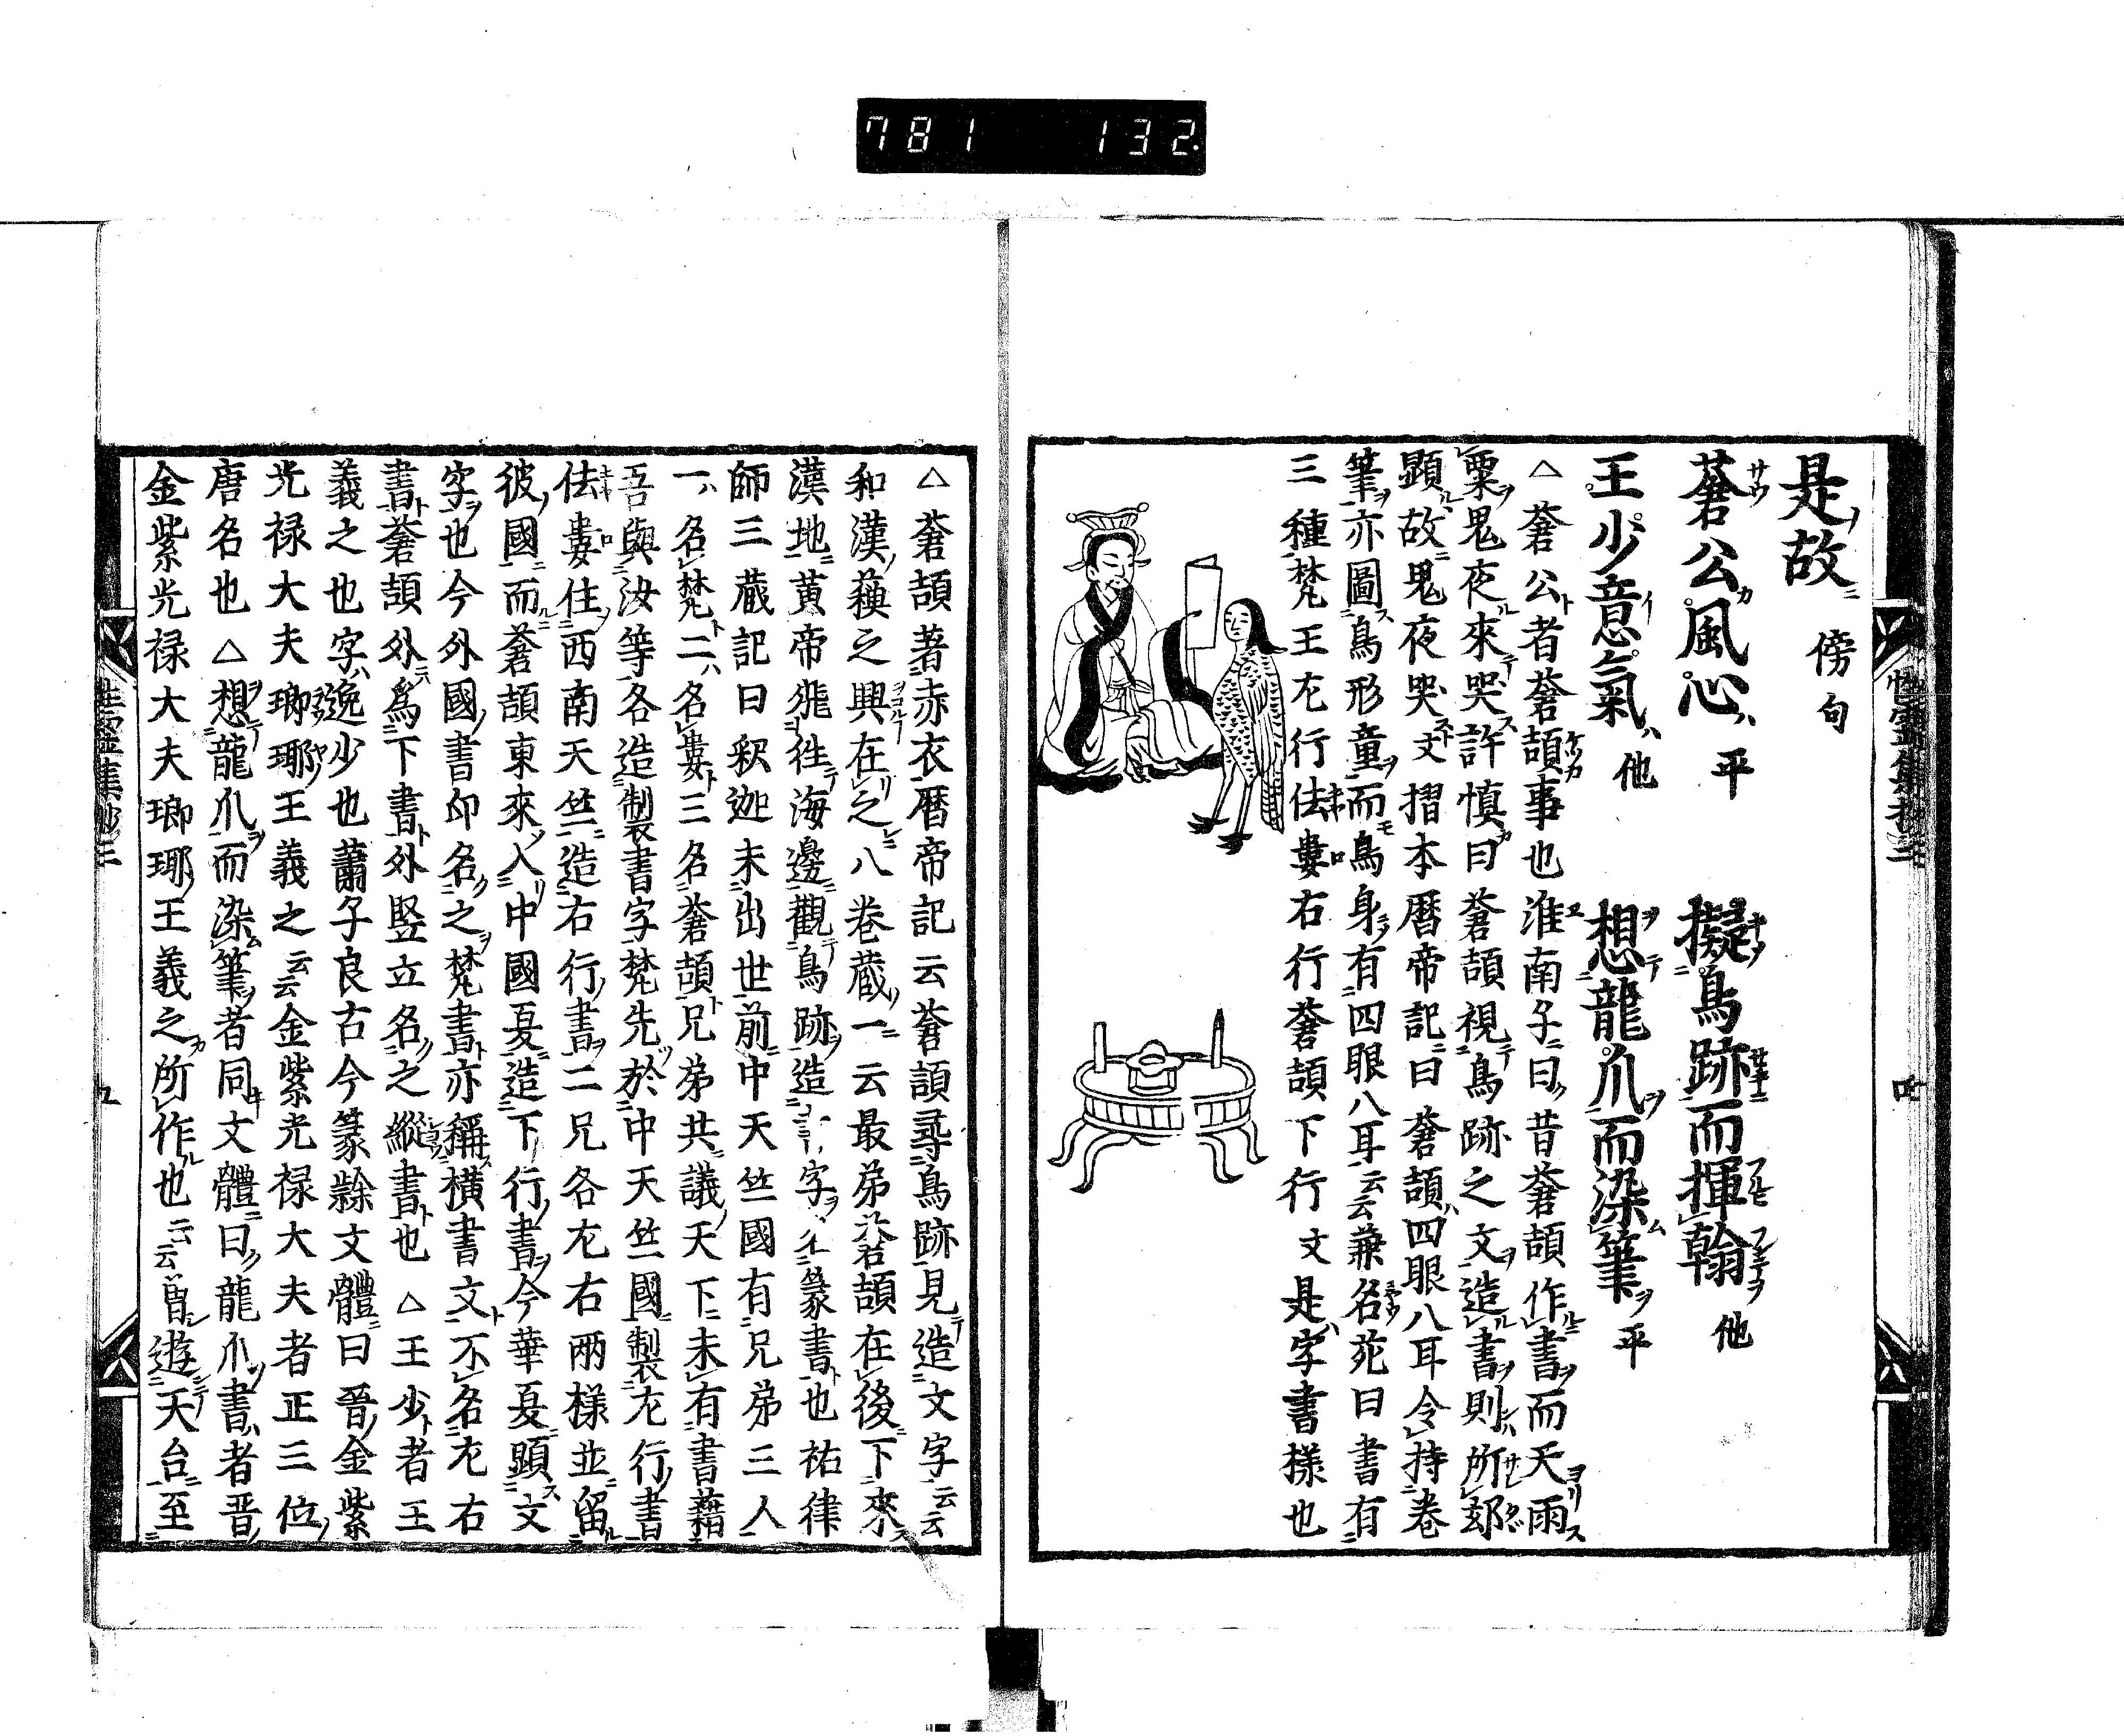 781 132
是故 傍句
蒼公風心 平 擬鳥跡而揮翰 他
王少意氣 他 想龍爪而染筆 平
△蒼公者蒼頡事也淮南子曰昔蒼頡作書而天雨
粟鬼夜來哭許慎曰蒼頡視鳥跡之文造書則所
顕故鬼夜哭文摺本暦帝記曰蒼頡四眼八耳令持巻
筆亦圖鳥形童而鳥身有四眼八耳云云兼名苑曰書有
三種梵王左行佉婁右行蒼頡下行文是字書様也
△蒼頡著赤衣暦帝記云蒼頡尋鳥跡見造文字云云
和漢之興在之八巻蔵一云最弟蒼頡在後下来
漢地黄帝往海邊觀鳥跡造字篆書也祐律
師三蔵記曰釈迦未出世前中天竺國有兄弟三人
一名梵二名婁三名蒼頡兄弟共議天下未有書藉
吾與汝等各造製書字梵先於中天竺國製左行書
佉婁住西南天竺造右行書二兄各左右兩様並留
彼國而蒼頡東來入中國夏造下行書今華夏顕文
字也今外國書仰名之梵書亦稱横書文不名左右
書蒼頡外為下書外竪立名之縱書也△王少者王
義之也字逸少也蕭子良古今篆隷文體曰晉金紫
光禄大夫瑯琊王義之云云金紫光禄大夫者正三位
唐名也△想龍爪而染筆者同文體曰龍爪書者晋
金紫光禄大夫瑯琊王義之所作也云云曽遊天台至